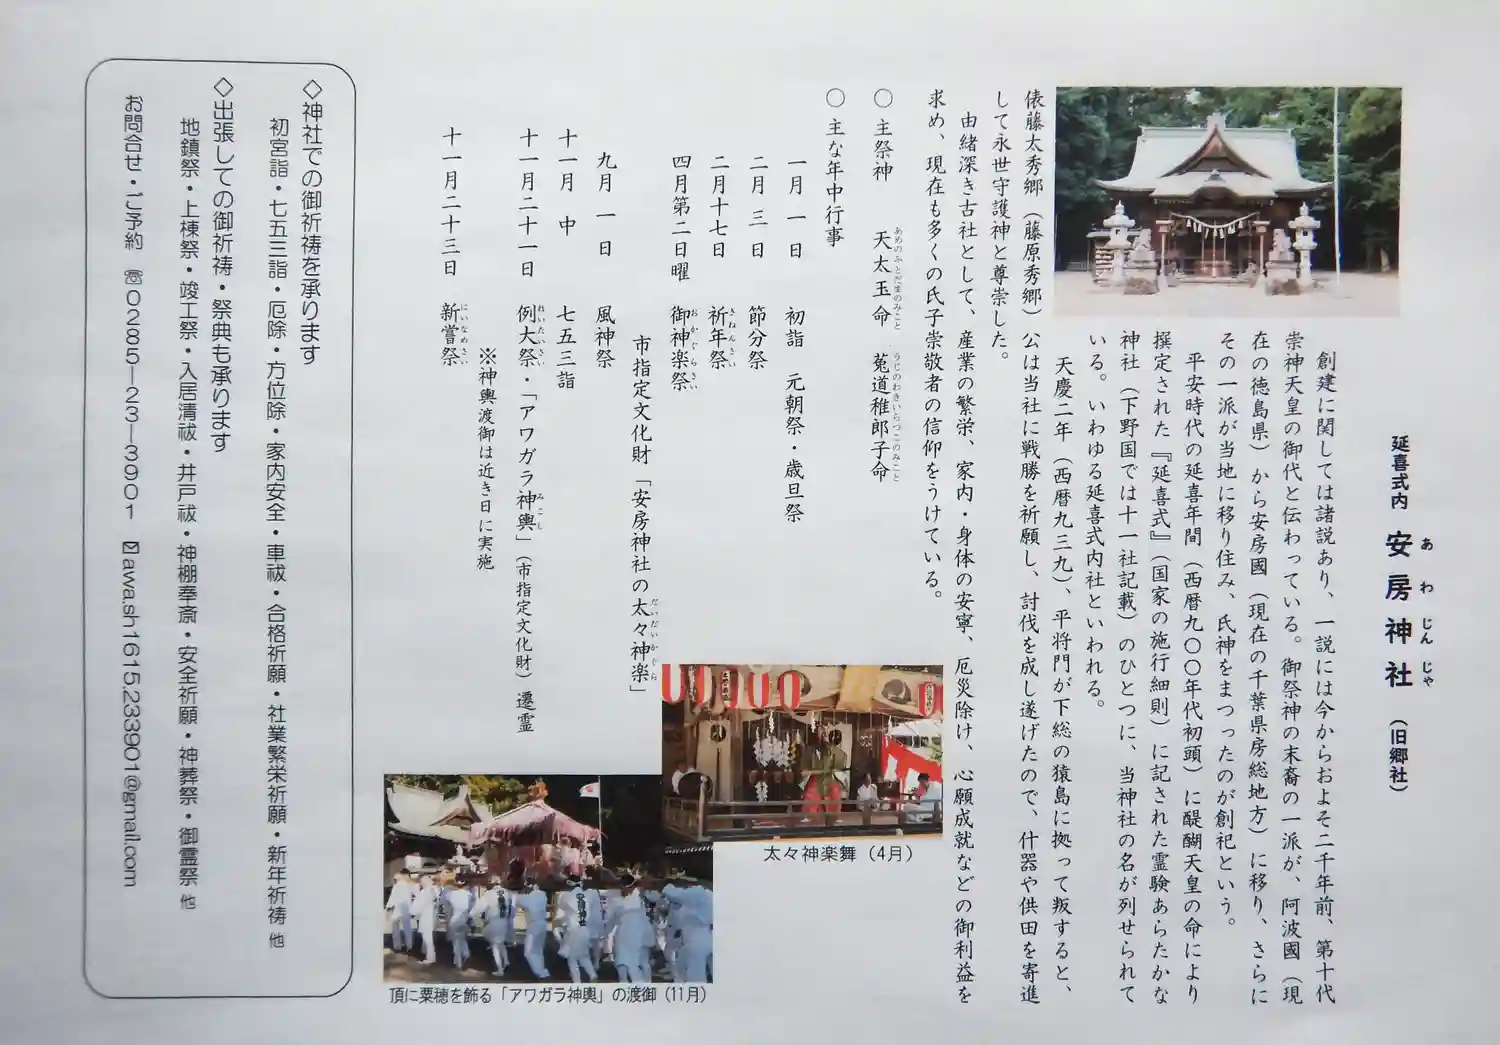 延喜式内 安房神社 (旧郷社)
あわじんじゃ
創建に関しては諸説あり、一説には今からおよそ二千年前、第十代
崇神天皇の御代と伝わっている。御祭神の末裔の一派が、阿波國(現
在の徳島県)から安房國(現在の千葉県房総地方)に移り、さらに
その一派が当地に移り住み、氏神をまつったのが創祀という。
平安時代の延喜年間(西暦九〇〇年代初頭)に醍醐天皇の命により
撰定された『延喜式』(国家の施行細則)に記された霊験あらたかな
神社(下野国では十一社記載)のひとつに、当神社の名が列せられて
いる。いわゆる延喜式内社といわれる。
天慶二年(西暦九三九)、平将門が下総の猿島に拠って叛すると、
俵藤太秀郷(藤原秀郷)公は当社に戦勝を祈願し、討伐を成し遂げたので、什器や供田を寄進
して永世守護神と尊崇した。
由緒深き古社として、産業の繁栄、家内・身体の安寧、厄災除け、心願成就などの御利益を
求め、現在も多くの氏子崇敬者の信仰をうけている。
○ 主祭神 天太玉命 菟道稚郎子命
あめのふとだまのみこと うじのわきいらつこのみこと
○ 主な年中行事
一月一日 初詣 元朝祭・歳旦祭
二月三日 節分祭
二月十七日 祈年祭
きねんさい
四月第二日曜 御神楽祭
おかぐらさい
市指定文化財「安房神社の太々神楽」
だいだいかぐら
九月一日 風神祭
十一月中 七五三詣
十一月二十一日 例大祭・「アワガラ神輿」(市指定文化財)遷霊
れいたいさい みこし
※神輿渡御は近き日に実施
十一月二十三日 新嘗祭
にいなめさい
太々神楽舞(4月)
頂に粟穂を飾る「アワガラ神輿」の渡御(11月)
◇神社での御祈祷を承ります
初宮詣・七五三詣・厄除・方位除・家内安全・車祓・合格祈願・社業繁栄祈願・新年祈祷 他
◇出張しての御祈祷・祭典も承ります
地鎮祭・上棟祭・竣工祭・入居清祓・井戸祓・神棚奉斎・安全祈願・神葬祭・御霊祭 他
お問合せ・ご予約 ☏0285―23―3901 ✉awa.sh1615.233901@gmail.com